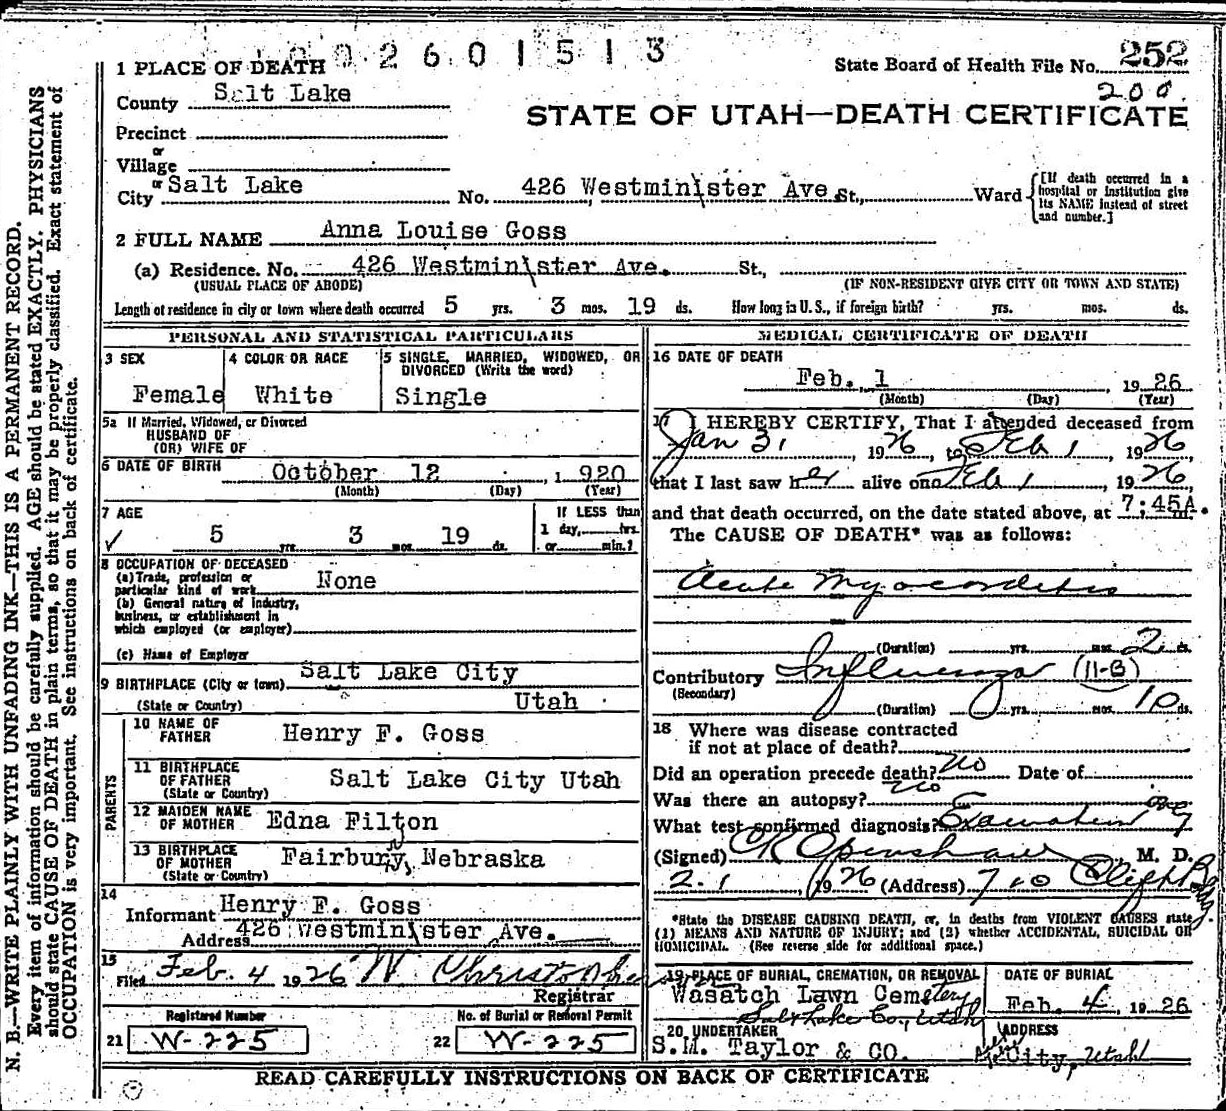 0 0 2 6 0 1 5 1 3
State Board of Health File No. 252
200
STATE OF UTAH—DEATH CERTIFICATE
1 PLACE OF DEATH
County Salt Lake
Precinct
or
Village
or
City Salt Lake No. 426 Westminister Ave. St., Ward
[If death occurred in a hospital or institution give its NAME instead of street and number.]
2 FULL NAME Anna Louise Goss
(a) Residence. No. 426 Westminister Ave. St.,
(USUAL PLACE OF ABODE) (IF NON-RESIDENT GIVE CITY OR TOWN AND STATE)
Length of residence in city or town where death occurred 5 yrs. 3 mos. 19 ds. How long in U. S., if foreign birth? yrs. mos. ds.
PERSONAL AND STATISTICAL PARTICULARS
3 SEX
Female
4 COLOR OR RACE
White
5 SINGLE, MARRIED, WIDOWED, OR DIVORCED (Write the word)
Single
5a If Married, Widowed, or Divorced
HUSBAND OF
(OR) WIFE OF
6 DATE OF BIRTH October 12, 1920
(Month) (Day) (Year)
7 AGE
5 yrs. 3 mos. 19 ds.
If LESS than
1 day, hrs.
or min.?
8 OCCUPATION OF DECEASED
(a) Trade, profession or particular kind of work None
(b) General nature of industry, business, or establishment in which employed (or employer)
(c) Name of Employer
9 BIRTHPLACE (City or town) Salt Lake City
(State or Country) Utah
PARENTS
10 NAME OF FATHER Henry F. Goss
11 BIRTHPLACE OF FATHER (State or Country) Salt Lake City Utah
12 MAIDEN NAME OF MOTHER Edna Filton
13 BIRTHPLACE OF MOTHER (State or Country) Fairbury, Nebraska
14
Informant Henry F. Goss
Address 426 Westminister Ave.
15
Filed Feb. 4 1926 W Christopherson
Registrar
Registered Number
21 W-225
No. of Burial or Removal Permit
22 W-225
MEDICAL CERTIFICATE OF DEATH
16 DATE OF DEATH
Feb. 1 1926
(Month) (Day) (Year)
17 I HEREBY CERTIFY, That I attended deceased from
Jan 31, 1926, to Feb 1, 1926,
that I last saw her alive on Feb 1, 1926,
and that death occurred, on the date stated above, at 7:45A m.
The CAUSE OF DEATH* was as follows:
Acute Myocorditis
(Duration) yrs. mos. 2 ds.
Contributory Influenza (11-B)
(Secondary)
(Duration) yrs. mos. 10 ds.
18 Where was disease contracted
if not at place of death?
Did an operation precede death? No Date of
Was there an autopsy? No
What test confirmed diagnosis? Examination only
(Signed) CR Openshaw M. D.
2.1, 1926 (Address) 710 Clift Bldg.
*State the DISEASE CAUSING DEATH, or, in deaths from VIOLENT CAUSES state (1) MEANS AND NATURE OF INJURY; and (2) whether ACCIDENTAL, SUICIDAL OR HOMICIDAL. (See reverse side for additional space.)
19 PLACE OF BURIAL, CREMATION, OR REMOVAL
Wasatch Lawn Cemetery
Salt Lake Co., Utah
DATE OF BURIAL
Feb. 4 1926
20 UNDERTAKER
S.M. Taylor & CO.
ADDRESS
City, Utah
READ CAREFULLY INSTRUCTIONS ON BACK OF CERTIFICATE
N. B.—WRITE PLAINLY WITH UNFADING INK—THIS IS A PERMANENT RECORD.
Every item of information should be carefully supplied. AGE should be stated EXACTLY. PHYSICIANS
should state CAUSE OF DEATH in plain terms, so that it may be properly classified. Exact statement of
OCCUPATION is very important. See instructions on back of certificate.